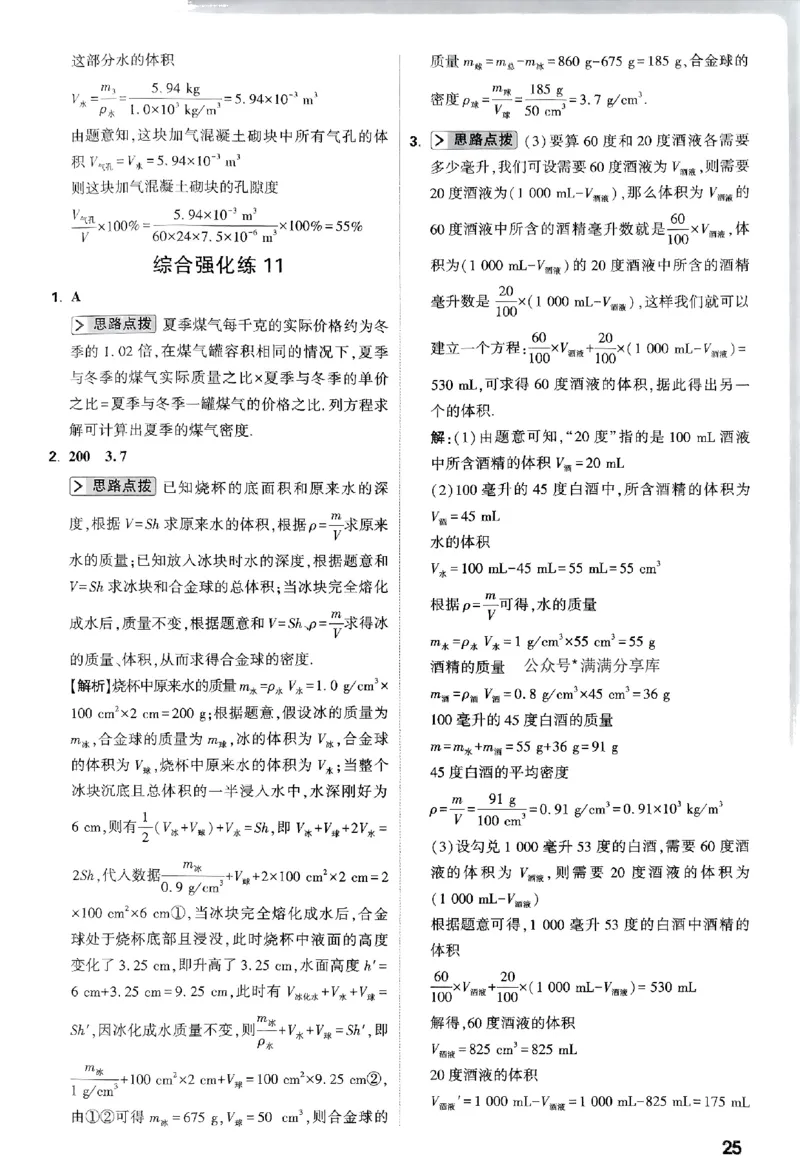 这部分水的体积
V水=m3/ρ水=5.94 kg/1.0×10³ kg/m³=5.94×10⁻³ m³
由题意知,这块加气混凝土砌块中所有气孔的体
积 V气孔=V水=5.94×10⁻³ m³
则这块加气混凝土砌块的孔隙度
V气孔/V×100%=5.94×10⁻³ m³/60×24×7.5×10⁻⁶ m³×100%=55%
综合强化练 11
1. A
> 思路点拨 夏季煤气每千克的实际价格约为冬
季的 1.02 倍,在煤气罐容积相同的情况下,夏季
与冬季的煤气实际质量之比×夏季与冬季的单价
之比=夏季与冬季一罐煤气的价格之比.列方程求
解可计算出夏季的煤气密度.
2. 200 3.7
> 思路点拨 已知烧杯的底面积和原来水的深
度,根据 V=Sh 求原来水的体积,根据ρ=m/V求原来
水的质量;已知放入冰块时水的深度,根据题意和
V=Sh 求冰块和合金球的总体积;当冰块完全熔化
成水后,质量不变,根据题意和 V=Sh、ρ=m/V求得冰
的质量、体积,从而求得合金球的密度.
【解析】烧杯中原来水的质量 m水=ρ水 V水=1.0 g/cm³×
100 cm²×2 cm=200 g;根据题意,假设冰的质量为
m冰,合金球的质量为 m球,冰的体积为 V冰,合金球
的体积为 V球,烧杯中原来水的体积为 V水;当整个
冰块沉底且总体积的一半浸入水中,水深刚好为
6 cm,则有1/2(V冰+V球)+V水=Sh,即 V冰+V球+2V水=
2Sh,代入数据m冰/0.9 g/cm³+V球+2×100 cm²×2 cm=2
×100 cm²×6 cm①,当冰块完全熔化成水后,合金
球处于烧杯底部且浸没,此时烧杯中液面的高度
变化了 3.25 cm,即升高了 3.25 cm,水面高度 h′=
6 cm+3.25 cm=9.25 cm,此时有 V冰化水+V水+V球=
Sh′,因冰化成水质量不变,则m冰/ρ水+V水+V球=Sh′,即
m冰/1 g/cm³+100 cm²×2 cm+V球=100 cm²×9.25 cm②,
由①②可得 m冰=675 g,V球=50 cm³,则合金球的
质量 m球=m总-m冰=860 g-675 g=185 g,合金球的
密度 ρ球=m球/V球=185 g/50 cm³=3.7 g/cm³.
3. > 思路点拨 (3)要算 60 度和 20 度酒液各需要
多少毫升,我们可设需要 60 度酒液为 V酒液,则需要
20 度酒液为(1 000 mL-V酒液),那么体积为 V酒液的
60 度酒液中所含的酒精毫升数就是60/100×V酒液,体
积为(1 000 mL-V酒液)的 20 度酒液中所含的酒精
毫升数是20/100×(1 000 mL-V酒液),这样我们就可以
建立一个方程:60/100×V酒液+20/100×(1 000 mL-V酒液)=
530 mL,可求得 60 度酒液的体积,据此得出另一
个的体积.
解:(1)由题意可知,“20 度”指的是 100 mL 酒液
中所含酒精的体积 V酒=20 mL
(2)100 毫升的 45 度白酒中,所含酒精的体积为
V酒=45 mL
水的体积
V水=100 mL-45 mL=55 mL=55 cm³
根据ρ=m/V可得,水的质量
m水=ρ水 V水=1 g/cm³×55 cm³=55 g
酒精的质量 公众号*满满分享库
m酒=ρ酒 V酒=0.8 g/cm³×45 cm³=36 g
100 毫升的 45 度白酒的质量
m=m水+m酒=55 g+36 g=91 g
45 度白酒的平均密度
ρ=m/V=91 g/100 cm³=0.91 g/cm³=0.91×10³ kg/m³
(3)设勾兑 1 000 毫升 53 度的白酒,需要 60 度酒
液的体积为 V酒液,则需要 20 度酒液的体积为
(1 000 mL-V酒液)
根据题意可得,1 000 毫升 53 度的白酒中酒精的
体积
60/100×V酒液+20/100×(1 000 mL-V酒液)=530 mL
解得,60 度酒液的体积
V酒液=825 cm³=825 mL
20 度酒液的体积
V酒液′=1 000 mL-V酒液=1 000 mL-825 mL=175 mL
25